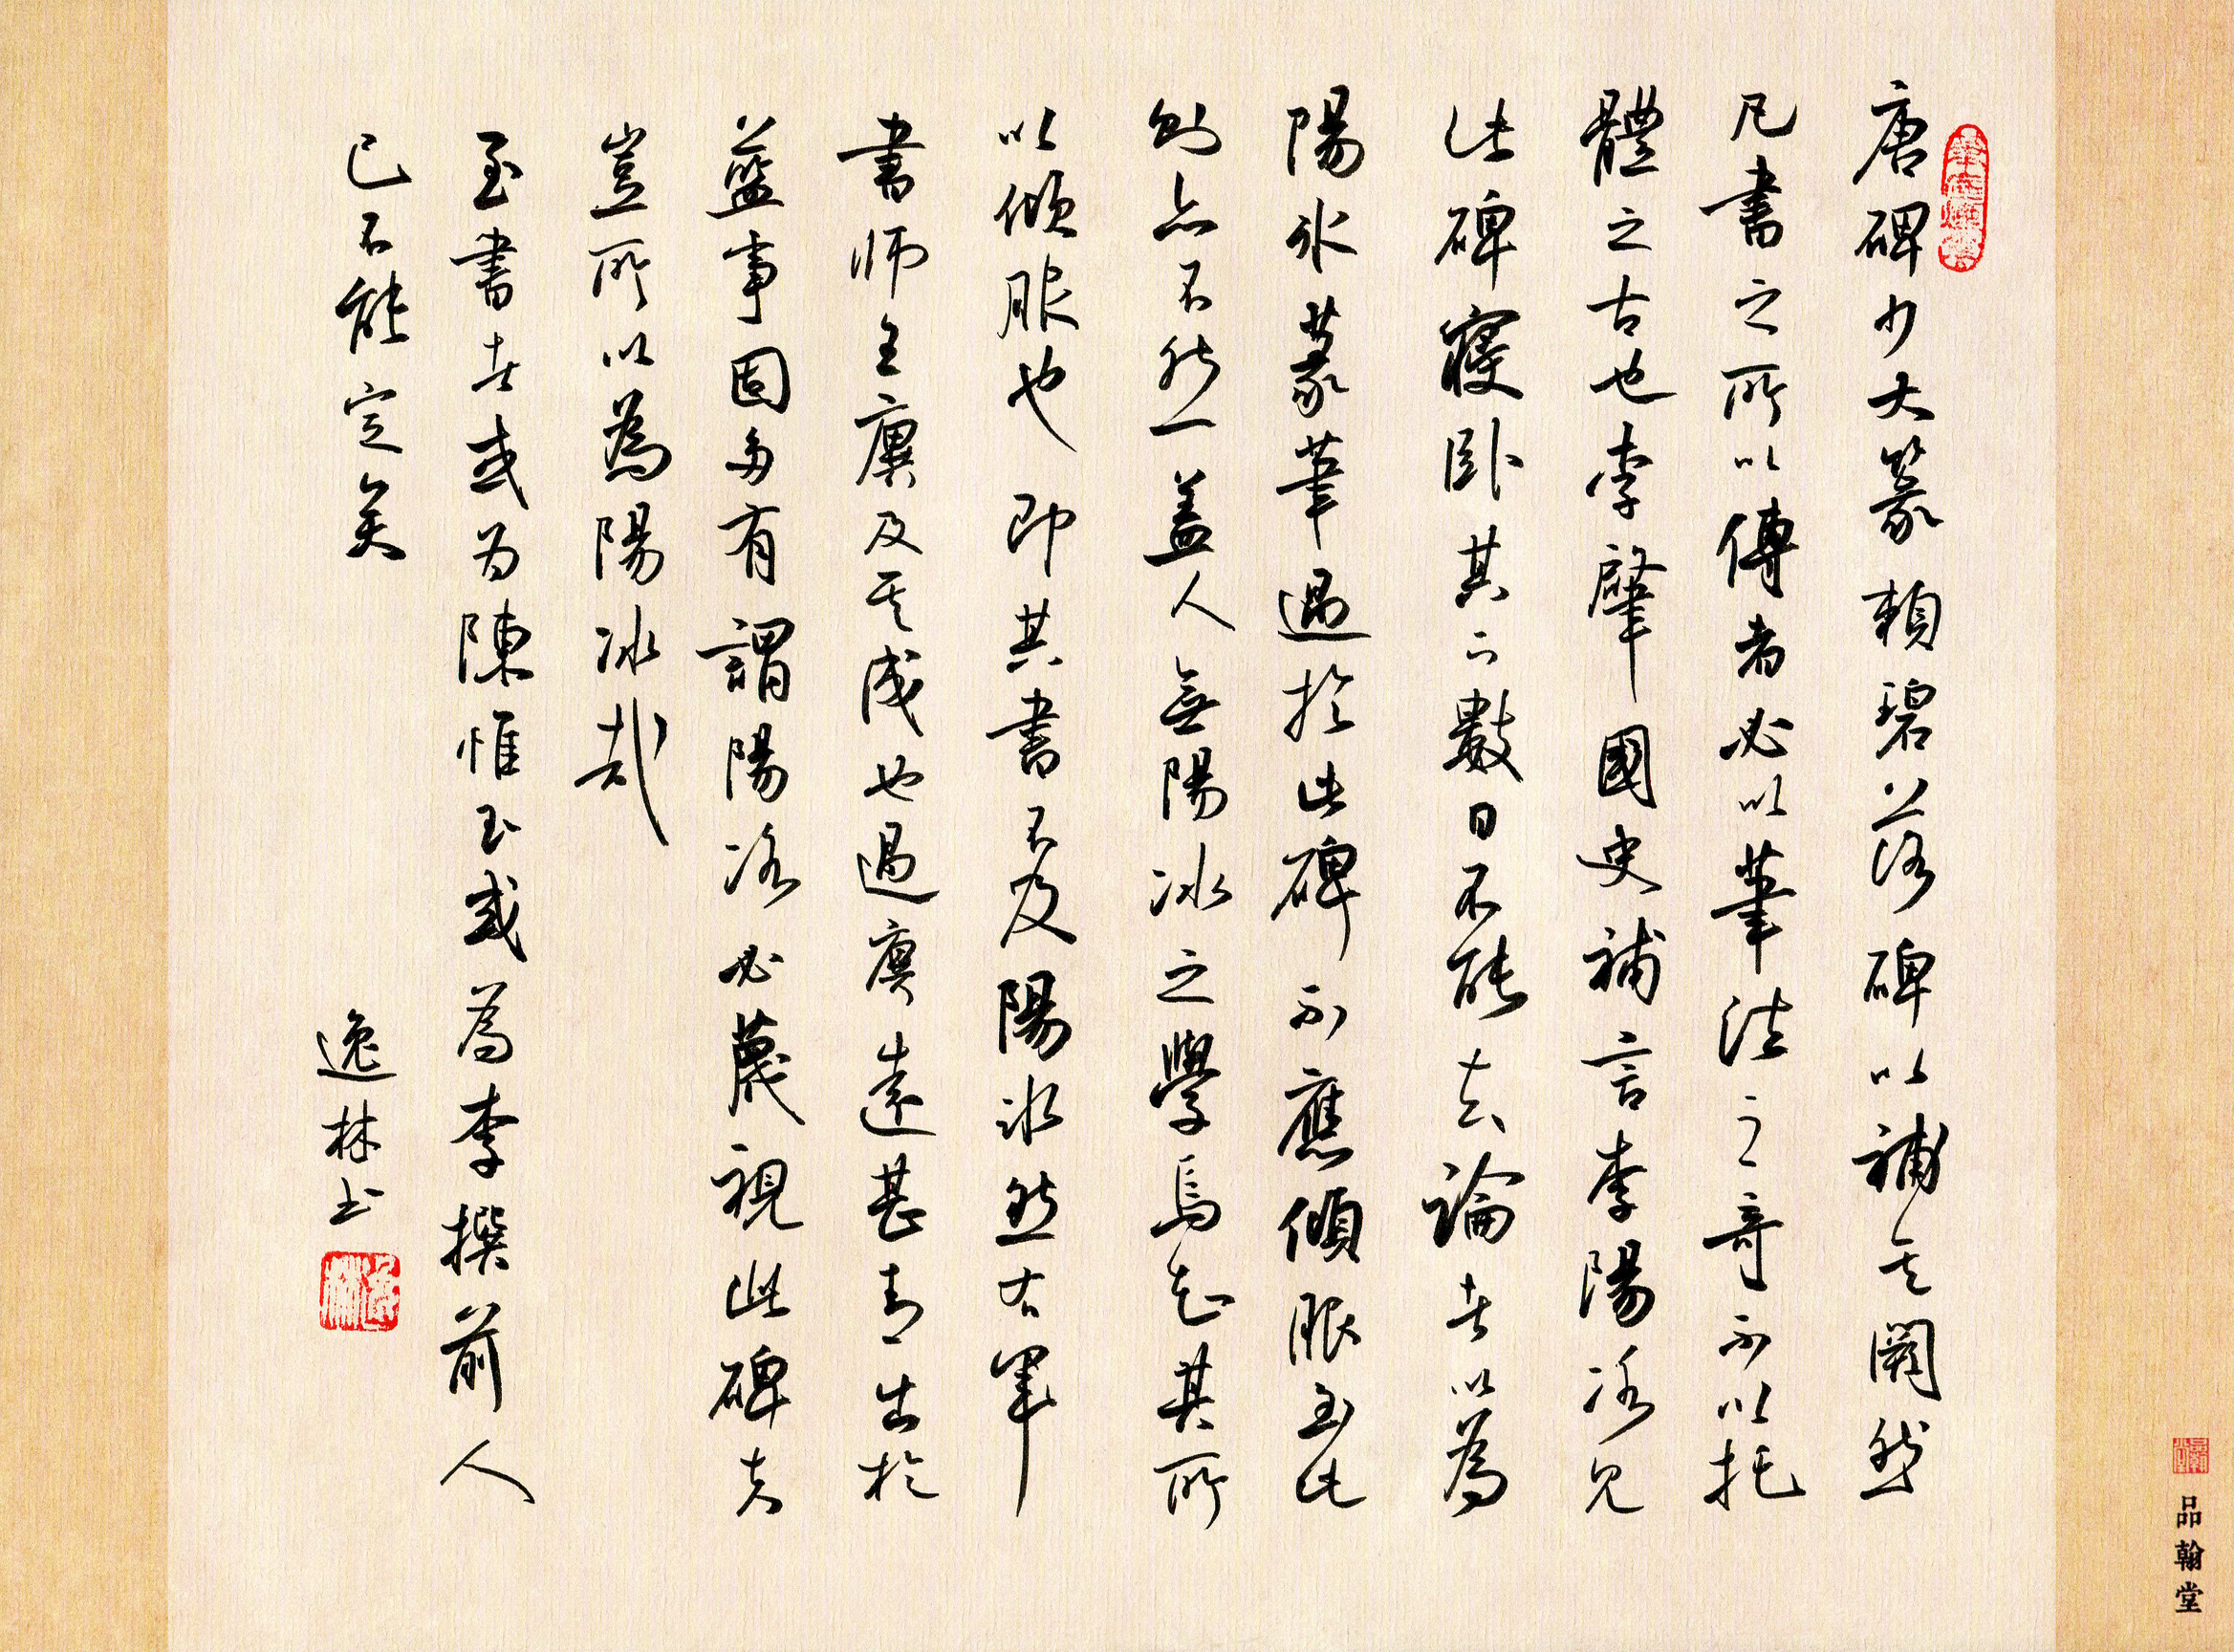 唐碑少大篆賴碧落碑以補其闕然
凡書之所以傳者必以筆法之奇不以托
體之古也李肇國史補言李陽冰見
此碑寢臥其下數日不能去論者以為
陽冰篆筆過於此碑不應傾服至此
則亦不然蓋人無陽冰之學焉知其所
以傾服也即其書不及陽冰然右軍
書師王廙及其成也過廙遠甚青出於
藍事固多有謂陽冰必蔑視此碑夫
豈所以為陽冰哉
至書者或为陳惟玉或為李撰前人
已不能定矣
逸林书
品翰堂